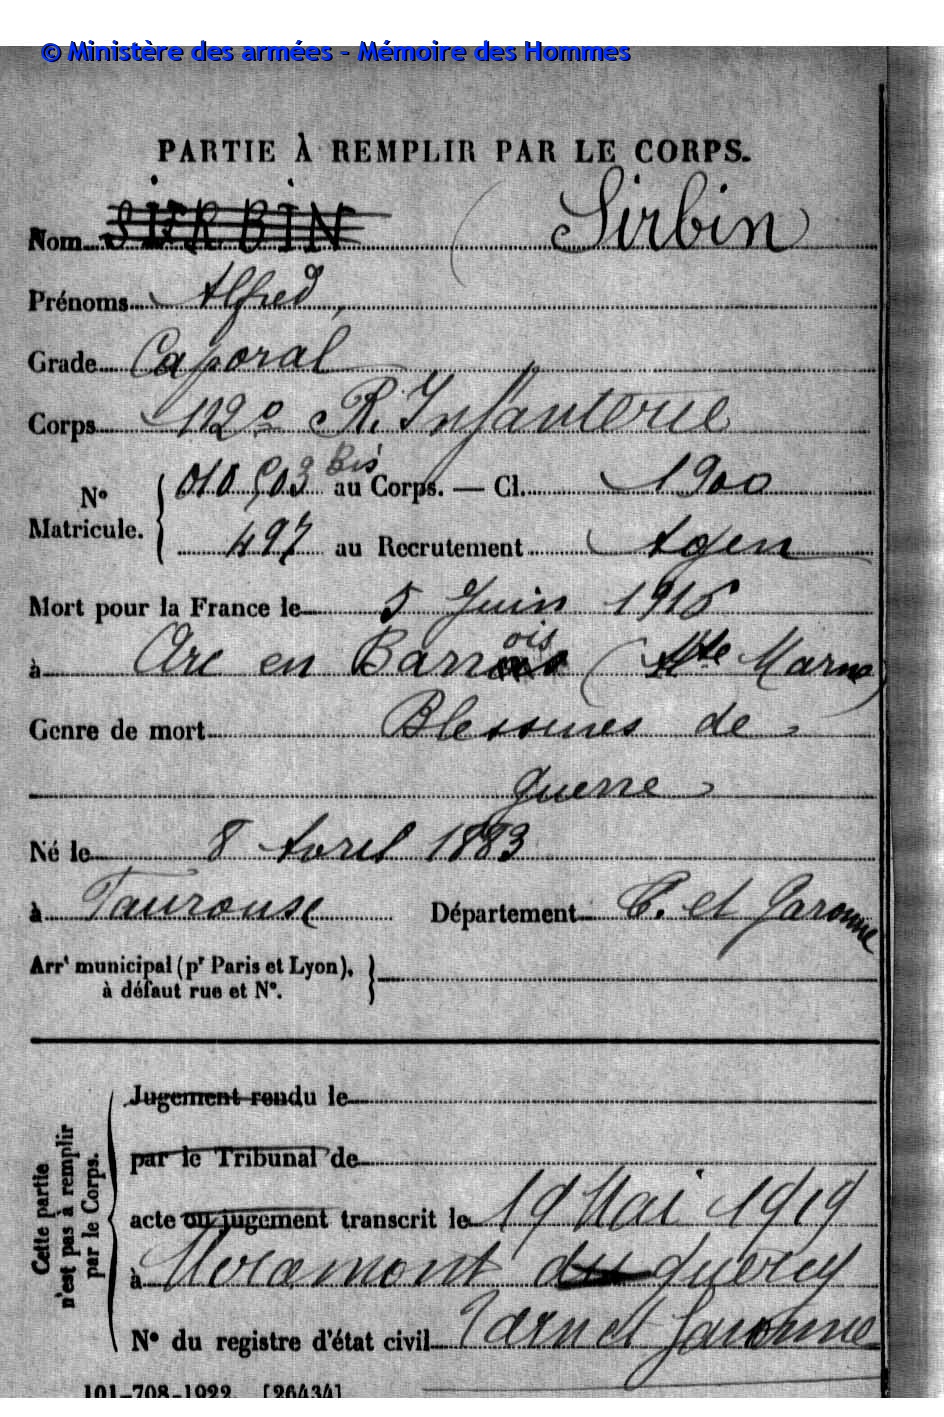 © Ministère des armées - Mémoire des Hommes
PARTIE À REMPLIR PAR LE CORPS.
Nom SIRBIN ( Sirbin
Prénoms Alfred,
Grade Caporal
Corps 112e R. Infanterie
N° Matricule. { 010 503 Bis au Corps. — Cl. 1900
497 au Recrutement Agen
Mort pour la France le 5 Juin 1915
à Arc en Barrois (Hte Marne)
Genre de mort Blessures de
guerre
Né le 8 Avril 1883
à Taurouse Département T. et Garonne
Arrt municipal (pr Paris et Lyon), }
à défaut rue et N°.
Cette partie n'est pas à remplir par le Corps.
Jugement rendu le
par le Tribunal de
acte ou jugement transcrit le 19 Mai 1919
à Miramont du Quercy
N° du registre d'état civil Tarn et Garonne
101-708-1922. [26434]